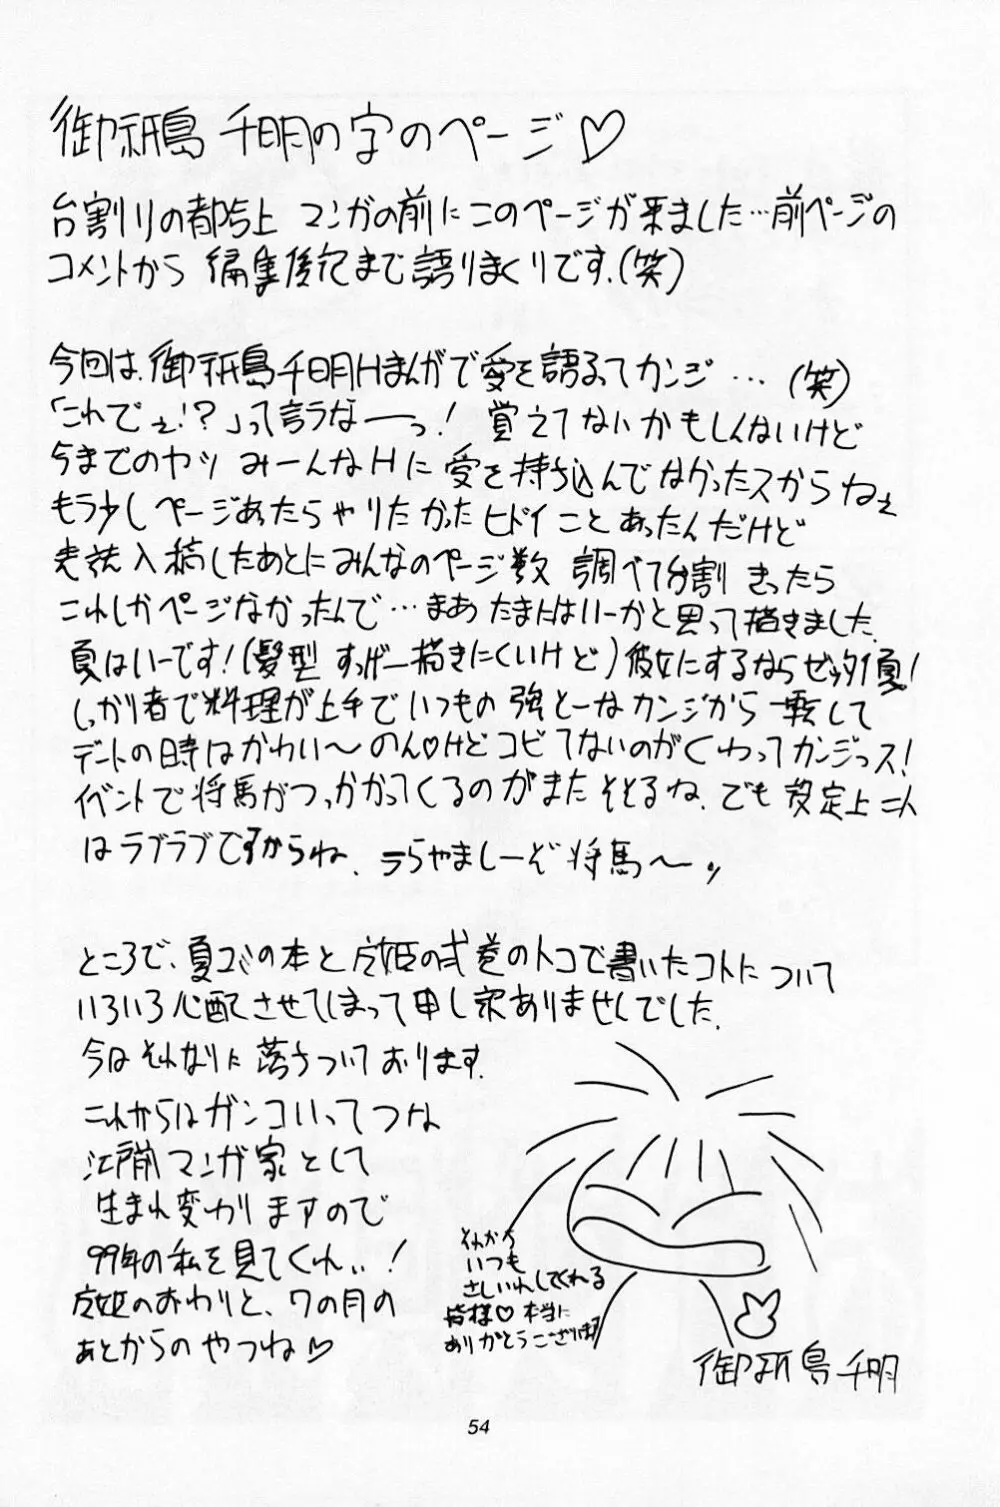 御祇島 千明の字のページ♡
台割りの都合上 マンガの前にこのページが来ました…前ページの
コメントから 編集後記まで語りまくりです.(笑)
今回は、御祇島千明Hまんがで愛を語るってカンジ…(笑)
「これでぇ!?」って言うなーっ! 覚えてないかもしんないけど
今までのヤツ みーんなHに愛を持ち込んでなかったスからねぇ
もう少しページあったらやりたかったヒドイことあったんだけど
表紙入稿したあとにみんなのページ数 調べて台割きったら
これしかページなかったんで…まあたまにはいーかと思って描きました.
夏はいーです!(髪型 すっげー描きにくいけど)彼女にするならゼッタイ夏!
しっかり者で料理が上手でいつもの強とーなカンジから一転して
デートの時はかわい〜のん♡けどコビてないのがくわってカンジっス!
イベントで将馬がつっかかってくるのがまたそそるね.でも設定上二人
はラブラブですからね. うらやましーぞ将馬〜ッ
ところで、夏コミの本と 姫の弐巻のトコで書いたコトについて
いろいろ心配させてしまって申し訳ありませんでした.
今はそれなりに落ちついております.
これからはガンコいってつな
江戸前マンガ家として
生まれ変わりますので
99年の私を見てくれぃ!
姫のおわりと、7の月の
あとからのやつね♡
それから
いつも
さしいれしてくれる
皆様♡本当に
ありがとうございます
御祇島千明
54